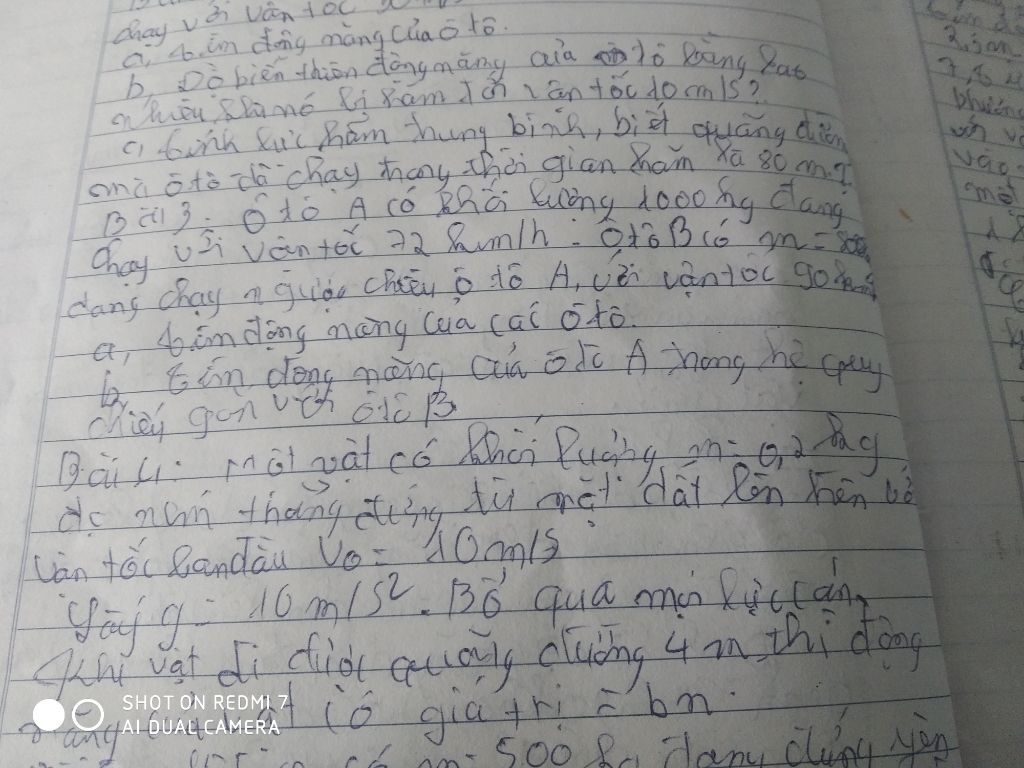 chạy với vận tốc
a, tìm động năng của ô tô.
b, Độ biến thiên động năng của ôtô bằng bao
nhiêu khi nó bị hãm tới vận tốc 10 m/s?
c, tính lực hãm trung bình, biết quãng đường
mà ôtô đã chạy trong thời gian hãm là 80 m?
Bài 3. Ô tô A có khối lượng 1000 kg đang
chạy với vận tốc 72 km/h. Ôtô B có m = 800
đang chạy ngược chiều ô tô A, với vận tốc 90 km/h
a, tìm động năng của các ôtô.
b, tìm động năng của ôtô A trong hệ quy
chiếu gắn với ôtô B
Bài 4: Một vật có khối lượng m = 0,2 kg
đc ném thẳng đứng từ mặt đất lên trên với
vận tốc ban đầu V₀ = 10 m/s
Lấy g = 10 m/s². Bỏ qua mọi lực cản,
Khi vật đi được quãng đường 4 m, thì động
năng có giá trị = bn
500 kg đang đứng yên
SHOT ON REDMI 7
AI DUAL CAMERA